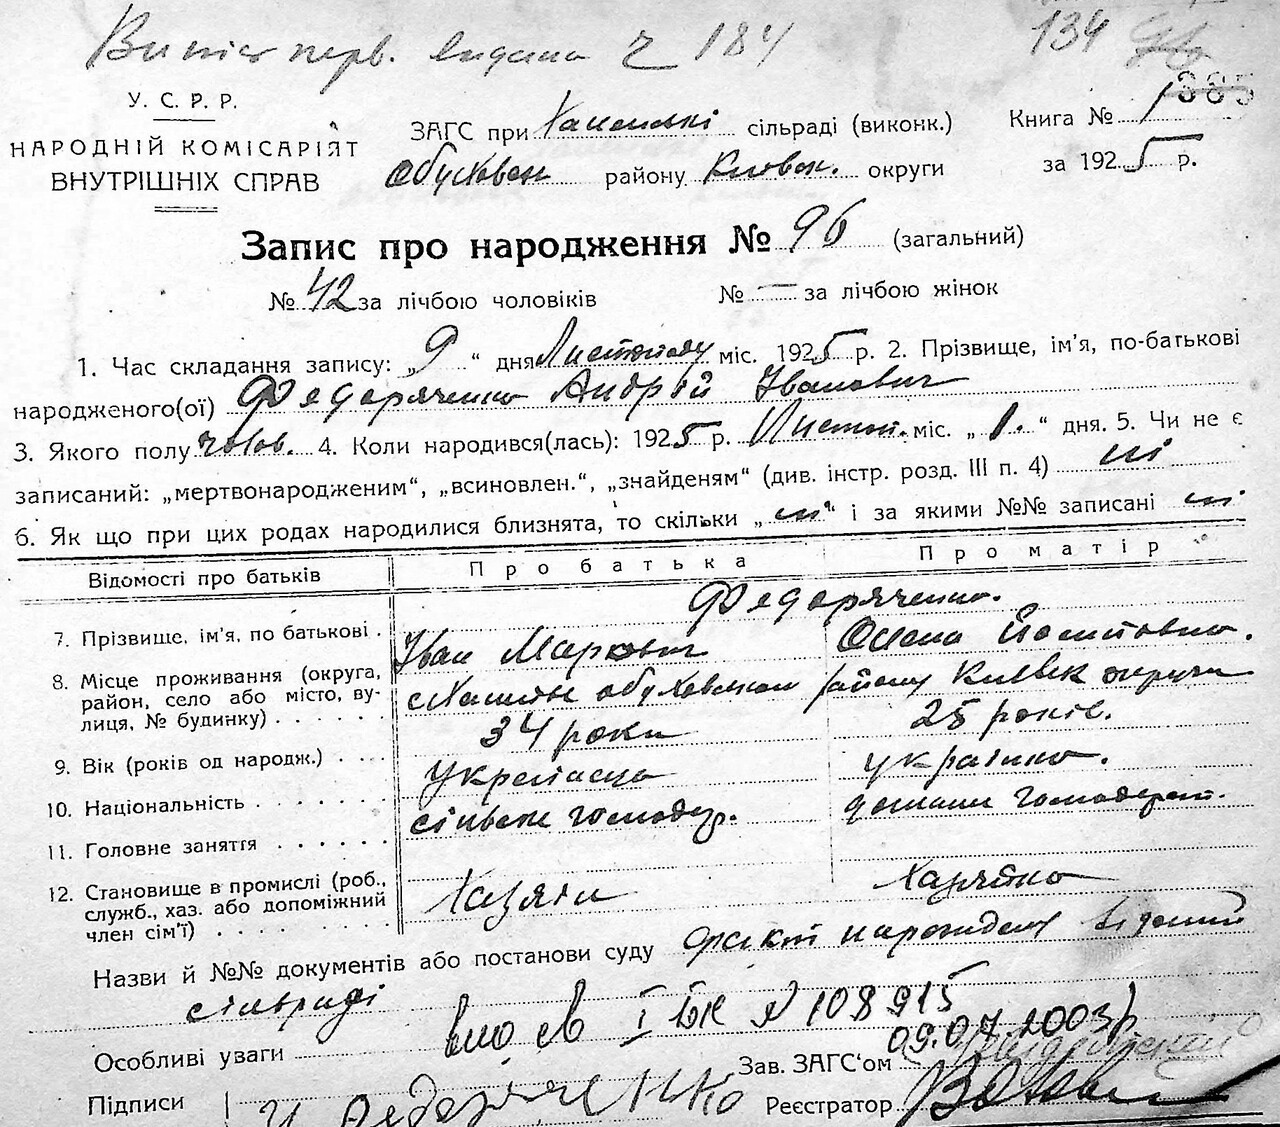 Випис перв. видана ч 184
134
385
У. С. Р. Р.
НАРОДНІЙ КОМІСАРІЯТ
ВНУТРІШНІХ СПРАВ
ЗАГС при сільраді (виконк.)
Обуховськ району Київськ. округи
Книга № 1
за 1925 р.
Запис про народження № 96 (загальний)
№ 42 за лічбою чоловіків № — за лічбою жінок
1. Час складання запису: „9“ дня Листопаду міс. 1925 р. 2. Прізвище, ім'я, по-батькові
народженого(ої) Федоряченко Андрій Іванович
3. Якого полу чолов. 4. Коли народився(лась): 1925 р. Листоп. міс. „1.“ дня. 5. Чи не є
записаний: „мертвонародженим“, „всиновлен.“, „знайденям“ (див. інстр. розд. III п. 4) ні
6. Як що при цих родах народилися близнята, то скільки „ні“ і за якими №№ записані ні
Відомості про батьків Про батька Про матір
Федоряченко.
7. Прізвище, ім'я, по батькові. Іван Маркович Олена Йосиповна.
8. Місце проживання (округа,
район, село або місто, ву-
лиця, № будинку) . . . . . . обуховськом району Київськ округи
9. Вік (років од народж.) . . . 34 роки 25 років.
10. Національність . . . . . . . українець українка.
11. Головне заняття . . . . . . сільськ господар. домашн господарст.
12. Становище в промислі (роб.,
служб., хаз. або допоміжний
член сім'ї) . . . . . . . . . Хазяїн Хазяйка
Назви й №№ документів або постанови суду факт народження відомий
сільраді
Особливі уваги вид. св I БК № 108915
09.07.2003р
Зав. ЗАГС'ом
Підписи Федоряченко Реєстратор